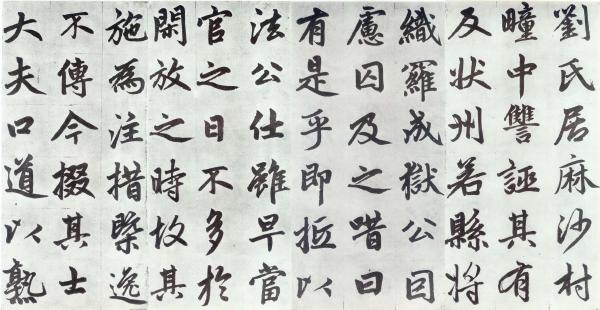 劉氏居麻沙村
疃中讐誣其有
反状州若縣将
織羅成獄公囙
慮囚及之唶曰
有是乎即抵以
法公仕雖早當
官之日不多於
閑放之時故其
施為注措槩逸
不傳今掇其士
大夫口道以熟